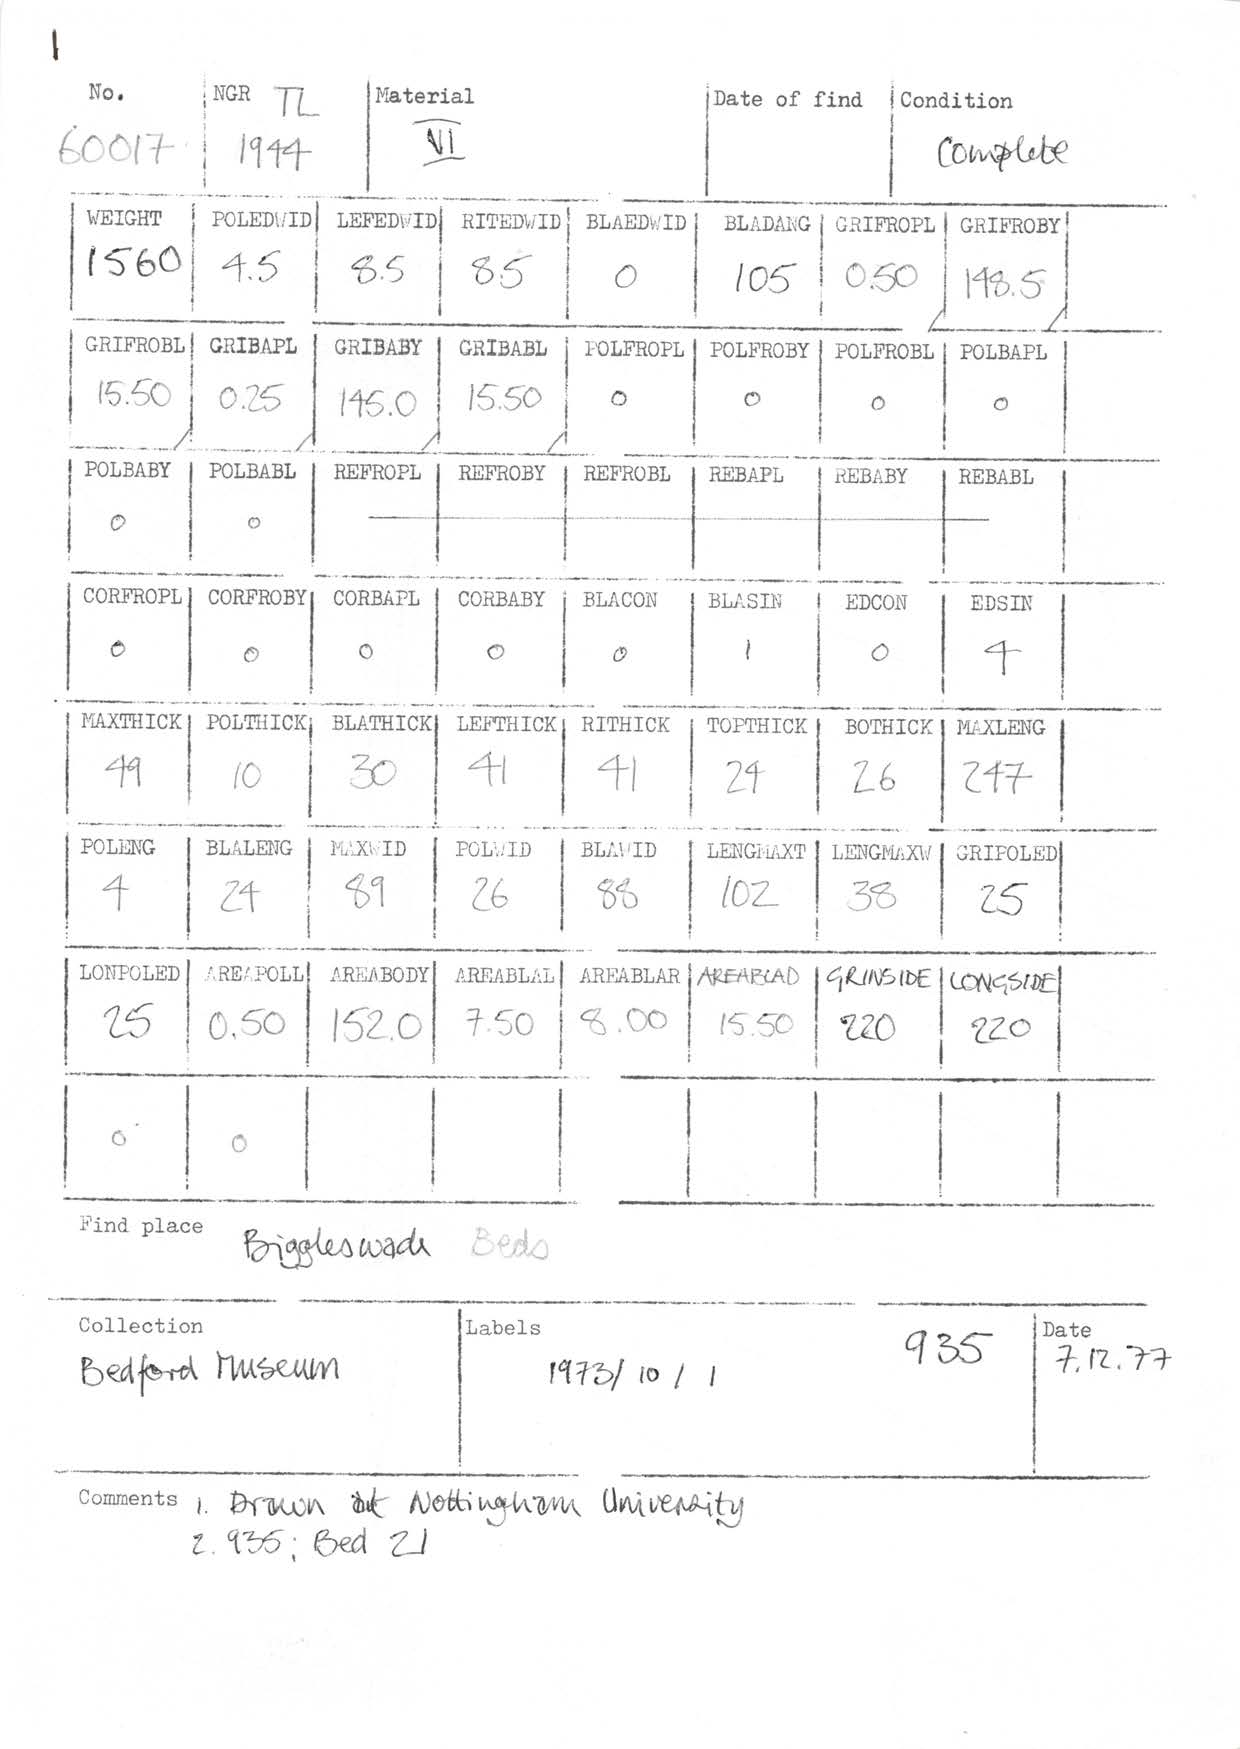 1
No. NGR TL Material Date of find Condition
60017 1944 VI Complete
WEIGHT POLEDWID LEFEDWID RITEDWID BLAEDWID BLADANG GRIFROPL GRIFROBY
1560 4.5 8.5 8.5 0 105 0.50 148.5
GRIFROBL GRIBAPL GRIBABY GRIBABL POLFROPL POLFROBY POLFROBL POLBAPL
15.50 0.25 145.0 15.50 0 0 0 0
POLBABY POLBABL REFROPL REFROBY REFROBL REBAPL REBABY REBABL
0 0
CORFROPL CORFROBY CORBAPL CORBABY BLACON BLASIN EDCON EDSIN
0 0 0 0 0 1 0 4
MAXTHICK POLTHICK BLATHICK LEFTHICK RITHICK TOPTHICK BOTHICK MAXLENG
49 10 30 41 41 24 26 247
POLENG BLALENG MAXWID POLWID BLAWID LENGMAXT LENGMAXW GRIPOLED
4 24 89 26 88 102 38 25
LONPOLED AREAPOLL AREABODY AREABLAL AREABLAR AREABLAD GRINSIDE LONGSIDE
25 0.50 152.0 7.50 8.00 15.50 220 220
0 0
Find place Biggleswade Beds
Collection Labels 935 Date
Bedford Museum 1973/10/1 7.12.77
Comments 1. Drawn at Nottingham University
2. 935; Bed 21